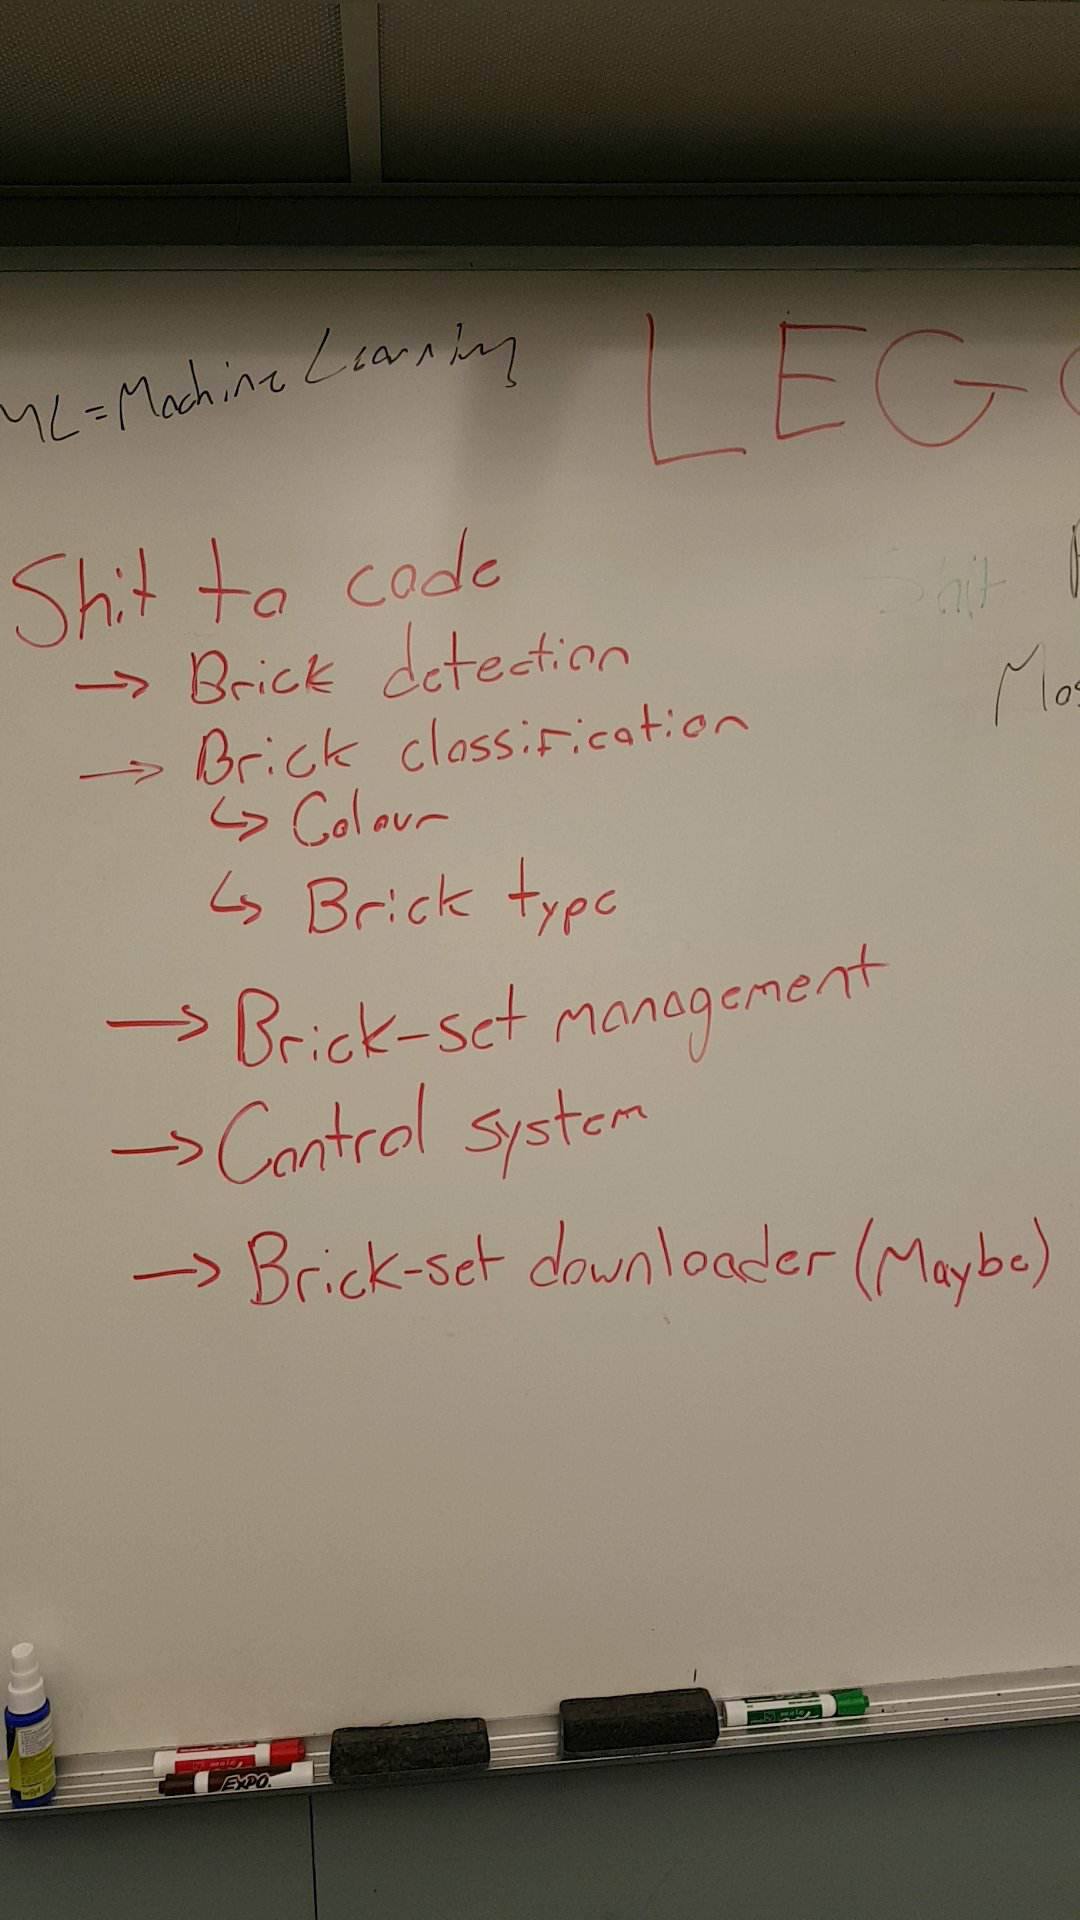 ML = Machine Learning
LEGO
Shit to code
→ Brick detection
→ Brick classification
↳ Colour
↳ Brick type
→ Brick-set management
→ Control system
→ Brick-set downloader (Maybe)
Shit
Mos
EXPO